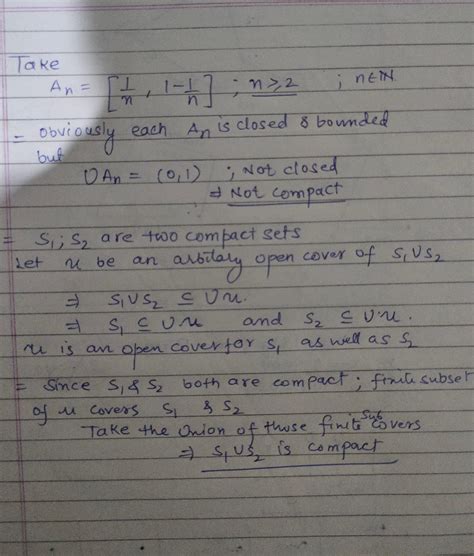 Take
An = [1/n , 1-1/n] ; n⩾2 ; n∈ℕ
= obviously each An is closed & bounded
but
∪An = (0,1) ; Not closed
⇒ Not compact
= S1 ; S2 are two compact sets
Let u be an arbitary open cover of S1∪S2
⇒ S1∪S2 ⊆ ∪u.
⇒ S1 ⊆ ∪u and S2 ⊆ ∪u.
u is an open cover for S1 as well as S2
= Since S1 & S2 both are compact ; finite subset
of u covers S1 & S2
Take the Union of those finite subcovers
⇒ S1∪S2 is compact